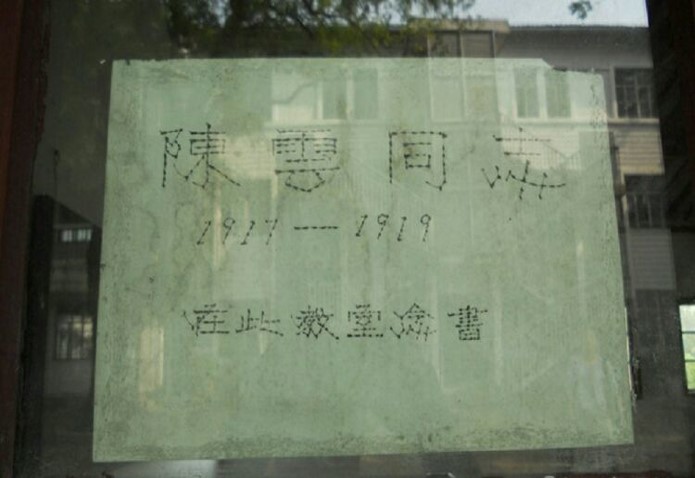 陳雲同志
1917—1919
在此教室書